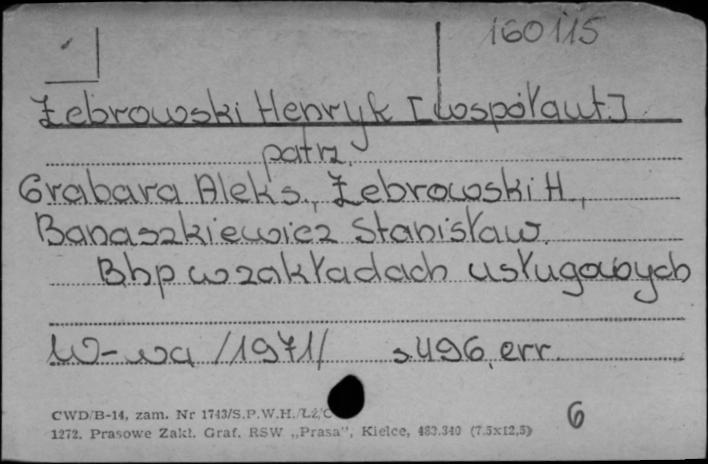 160115
Żebrowski Henryk [współaut.]
patrz
Grabara Aleks., Żebrowski H.,
Banaszkiewicz Stanisław.
Bhp w zakładach usługowych
W-wa /1971/ s 496, err.
6
CWD/B-14, zam. Nr 1743/S.P.W.H./Łż/C
1272. Prasowe Zakł. Graf. RSW „Prasa”, Kielce, 483.340 (7.5x12,5)